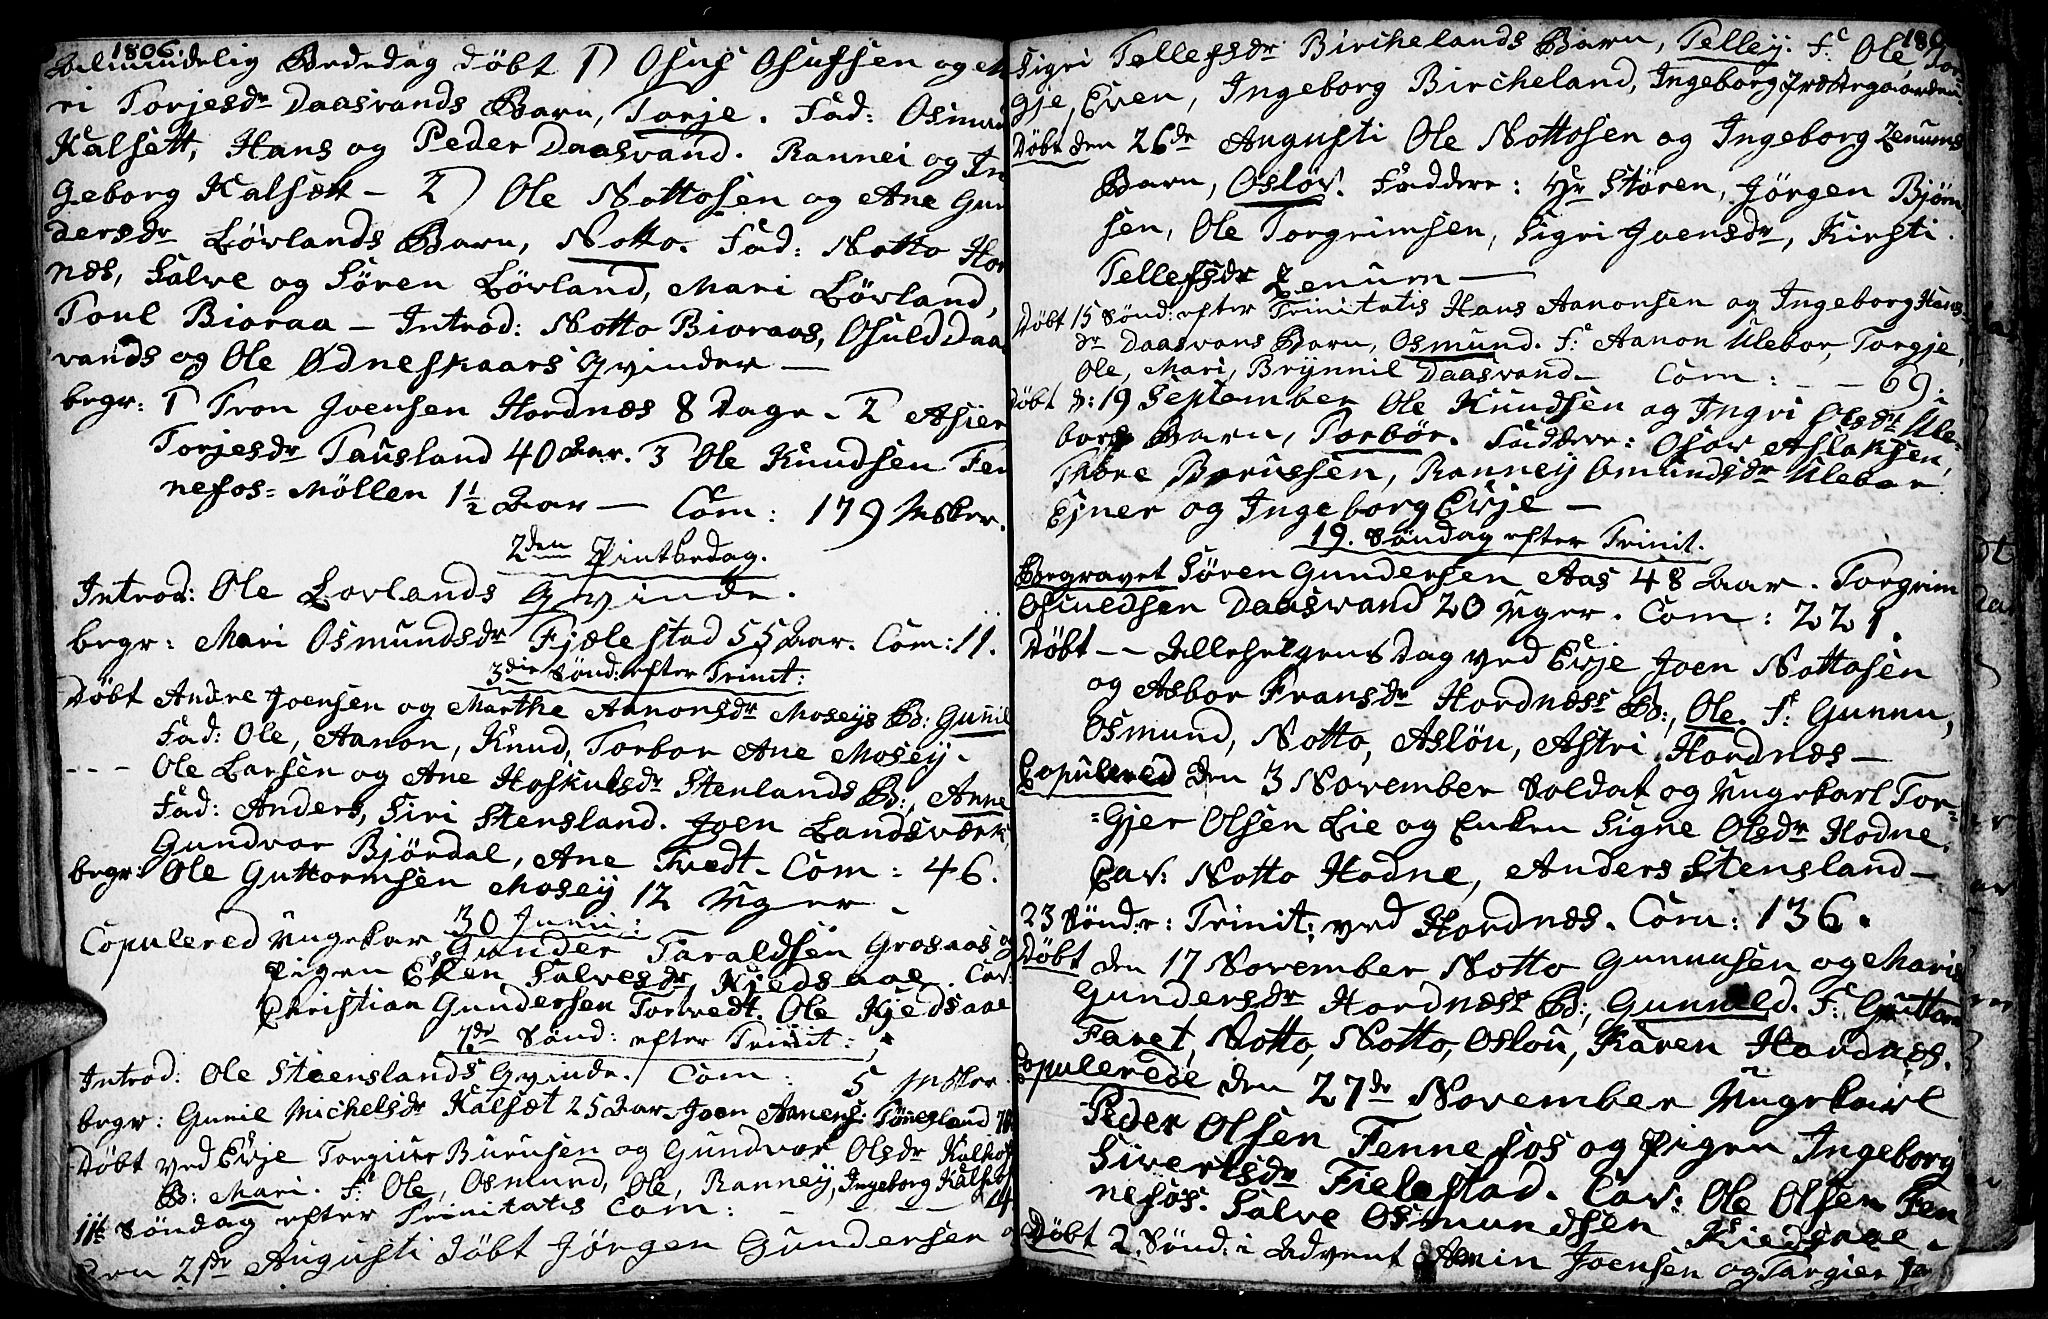 1806.
Almindelig Bededag døbt 1) Osuf Osufsen og
ri Torjesdr Daasvands Barn, Torje. Fad: Osmun
Kalsett, Hans og Peder Daasvand. Rannei og In
geborg Kalsett - 2) Ole Nottosen og Ane Gun
dersdr Lövlands Barn, Notto. Fad: Notto Hor
næs, Salve og Sören Lövland, Mari Lövland,
Toul Bioraa - Introd: Notto Bioraas, Osuld Daas
vands og Ole Ødneskaars Qvinder -
begr: 1 Tron Joensen Hordnæs 8 Dage - 2 Asier
Torjesdr Tausland 40 Aar. 3 Ole Knudsen Fen
nefos-Möllen 1½ Aar - Com: 179 Msker.
2den Pintsedag.
Introd: Ole Lovlands Qvinde.
begr: Mari Osmundsdr Fjælestad 55 Aar. Com: 11.
3die Sönd: efter Trinit:
Döbt Andre Joensen og Marthe Aanonsdr Moseys B: Gunil
Fad: Ole, Aanon, Knud, Torbor Ane Mosey.
--- Ole Larsen og Ane Hoskulsdr Stenlands B:, Anne
Fad: Anders, Siri Stensland. Joen Landsværk
Gundvor Björdal, Ane Tvedt - Com: 46.
begr: Ole Guttormsen Mosey 12 Uger -
30 Junii:
Copulered Ungekar Gunder Taraldsen Grosaas og
Pigen Eken Salvesdr, Kjedsaae. Cav:
Christian Gundersen Torvedt. Ole Kjedsaae
7de Sönd: efter Trinit:
Introd: Ole Steenslands Qvinde. Com: 5 Msker
begr: Gunil Michelsdr Kalsæt 25 Aar. Joen Aanens: Tönesland
Döbt ved Evje Torgius Burusen og Gundvor Olsdr Kalhof
B: Mari. F: Ole, Osmund, Ole, Ranney, Ingeborg Kalhof
11te Söndag efter Trinitatis Com: - - -
Den 21de Augusti döbt Jörgen Gundersen o
Sigri Tellefsdr Birchelands Barn, Telley. F: Ole, Tor-
gje, Even, Ingeborg Bircheland, Ingeborg Præstegaarden.
Döbt den 26de Augusti Ole Nottosen og Ingeborg Senums
Barn, Oslöv. Faddere: Hr Stören, Jörgen Björn
sen, Ole Torgrimsen, Sigri Joensdr, Kirsti
Tellefsdr Senum -
Döbt 15 Sönd: efter Trinitatis Hans Aanonsen og Ingeborg Hans-
dr Daasvans Barn, Osmund. F: Aanon Ulebor, Torgje,
Ole, Mari, Brynnil Daasvand - Com: - - 69:
Döbt d: 19 September Ole Knudsen og Ingri Olsdr Ule-
bors Barn, Torbör. Faddere: Osov Aslaksen,
Thore Borussen, Ranney Omundsdr Ulebor
Ejner og Ingeborg Evje -
19. Söndag efter Trinit.
Begravet Sören Gundersen Aas 48 Aar. Torgrim
Osuldsen Daasvand 20 Uger. Com: 221.
Döbt -- Allehelgens Dag ved Evje Joen Nottosen
og Asbor Fransdr Hordness B:, Ole. F: Gunnu,
Osmund, Notto, Aslöu, Astri Hordnæs -
Copulered den 3 November Soldat og Ungekarl Tor-
gjer Olsen Lie og Enken Signe Olsdr Hodne.
Cav: Notto Hodne, Anders Stensland -
23 Sönd: e: Trinit: ved Hordnæs. Com: 136.
Döbt den 17 November Notto Gunnusen og Maris
Gundersdr Hordness B:, Gunnuld. F: Guttorm
Faret, Notto, Notto, Oslöu, Karen Hordnæs.
Copulerede den 27de November Ungekarl
Peder Olsen Fennefos og Pigen Ingeborg
Sivertsdr Fielestad. Cav: Ole Olsen Fen
nefos. Salve Osmundsen Kiedsaae.
Döbt 2. Sönd: i Advent Joensen og Targier